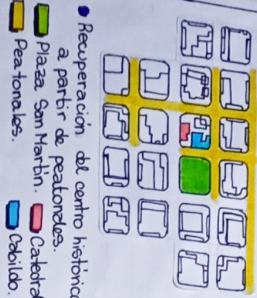 Recuperación del centro histórico
a partir de peatonales.
Plaza San Martín.
Catedral
Peatonales.
Cabildo.